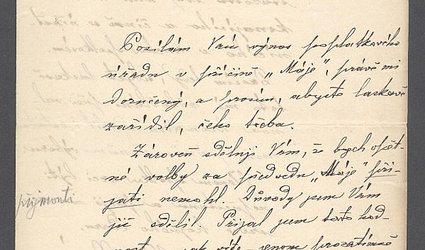 Posílám Vám výnos poplatkového
úřadu v příčině „Máje“, právě mi
doručený, a prosím, abyste laskavě
zařídil, čeho třeba.
Zároveň sděluji Vám, že bych opětné
volby za předsedu „Máje“ přijati
nemohl. Důvody jsem Vám
již sdělil. Přijal jsem tuto hod-
jenom prozatímně